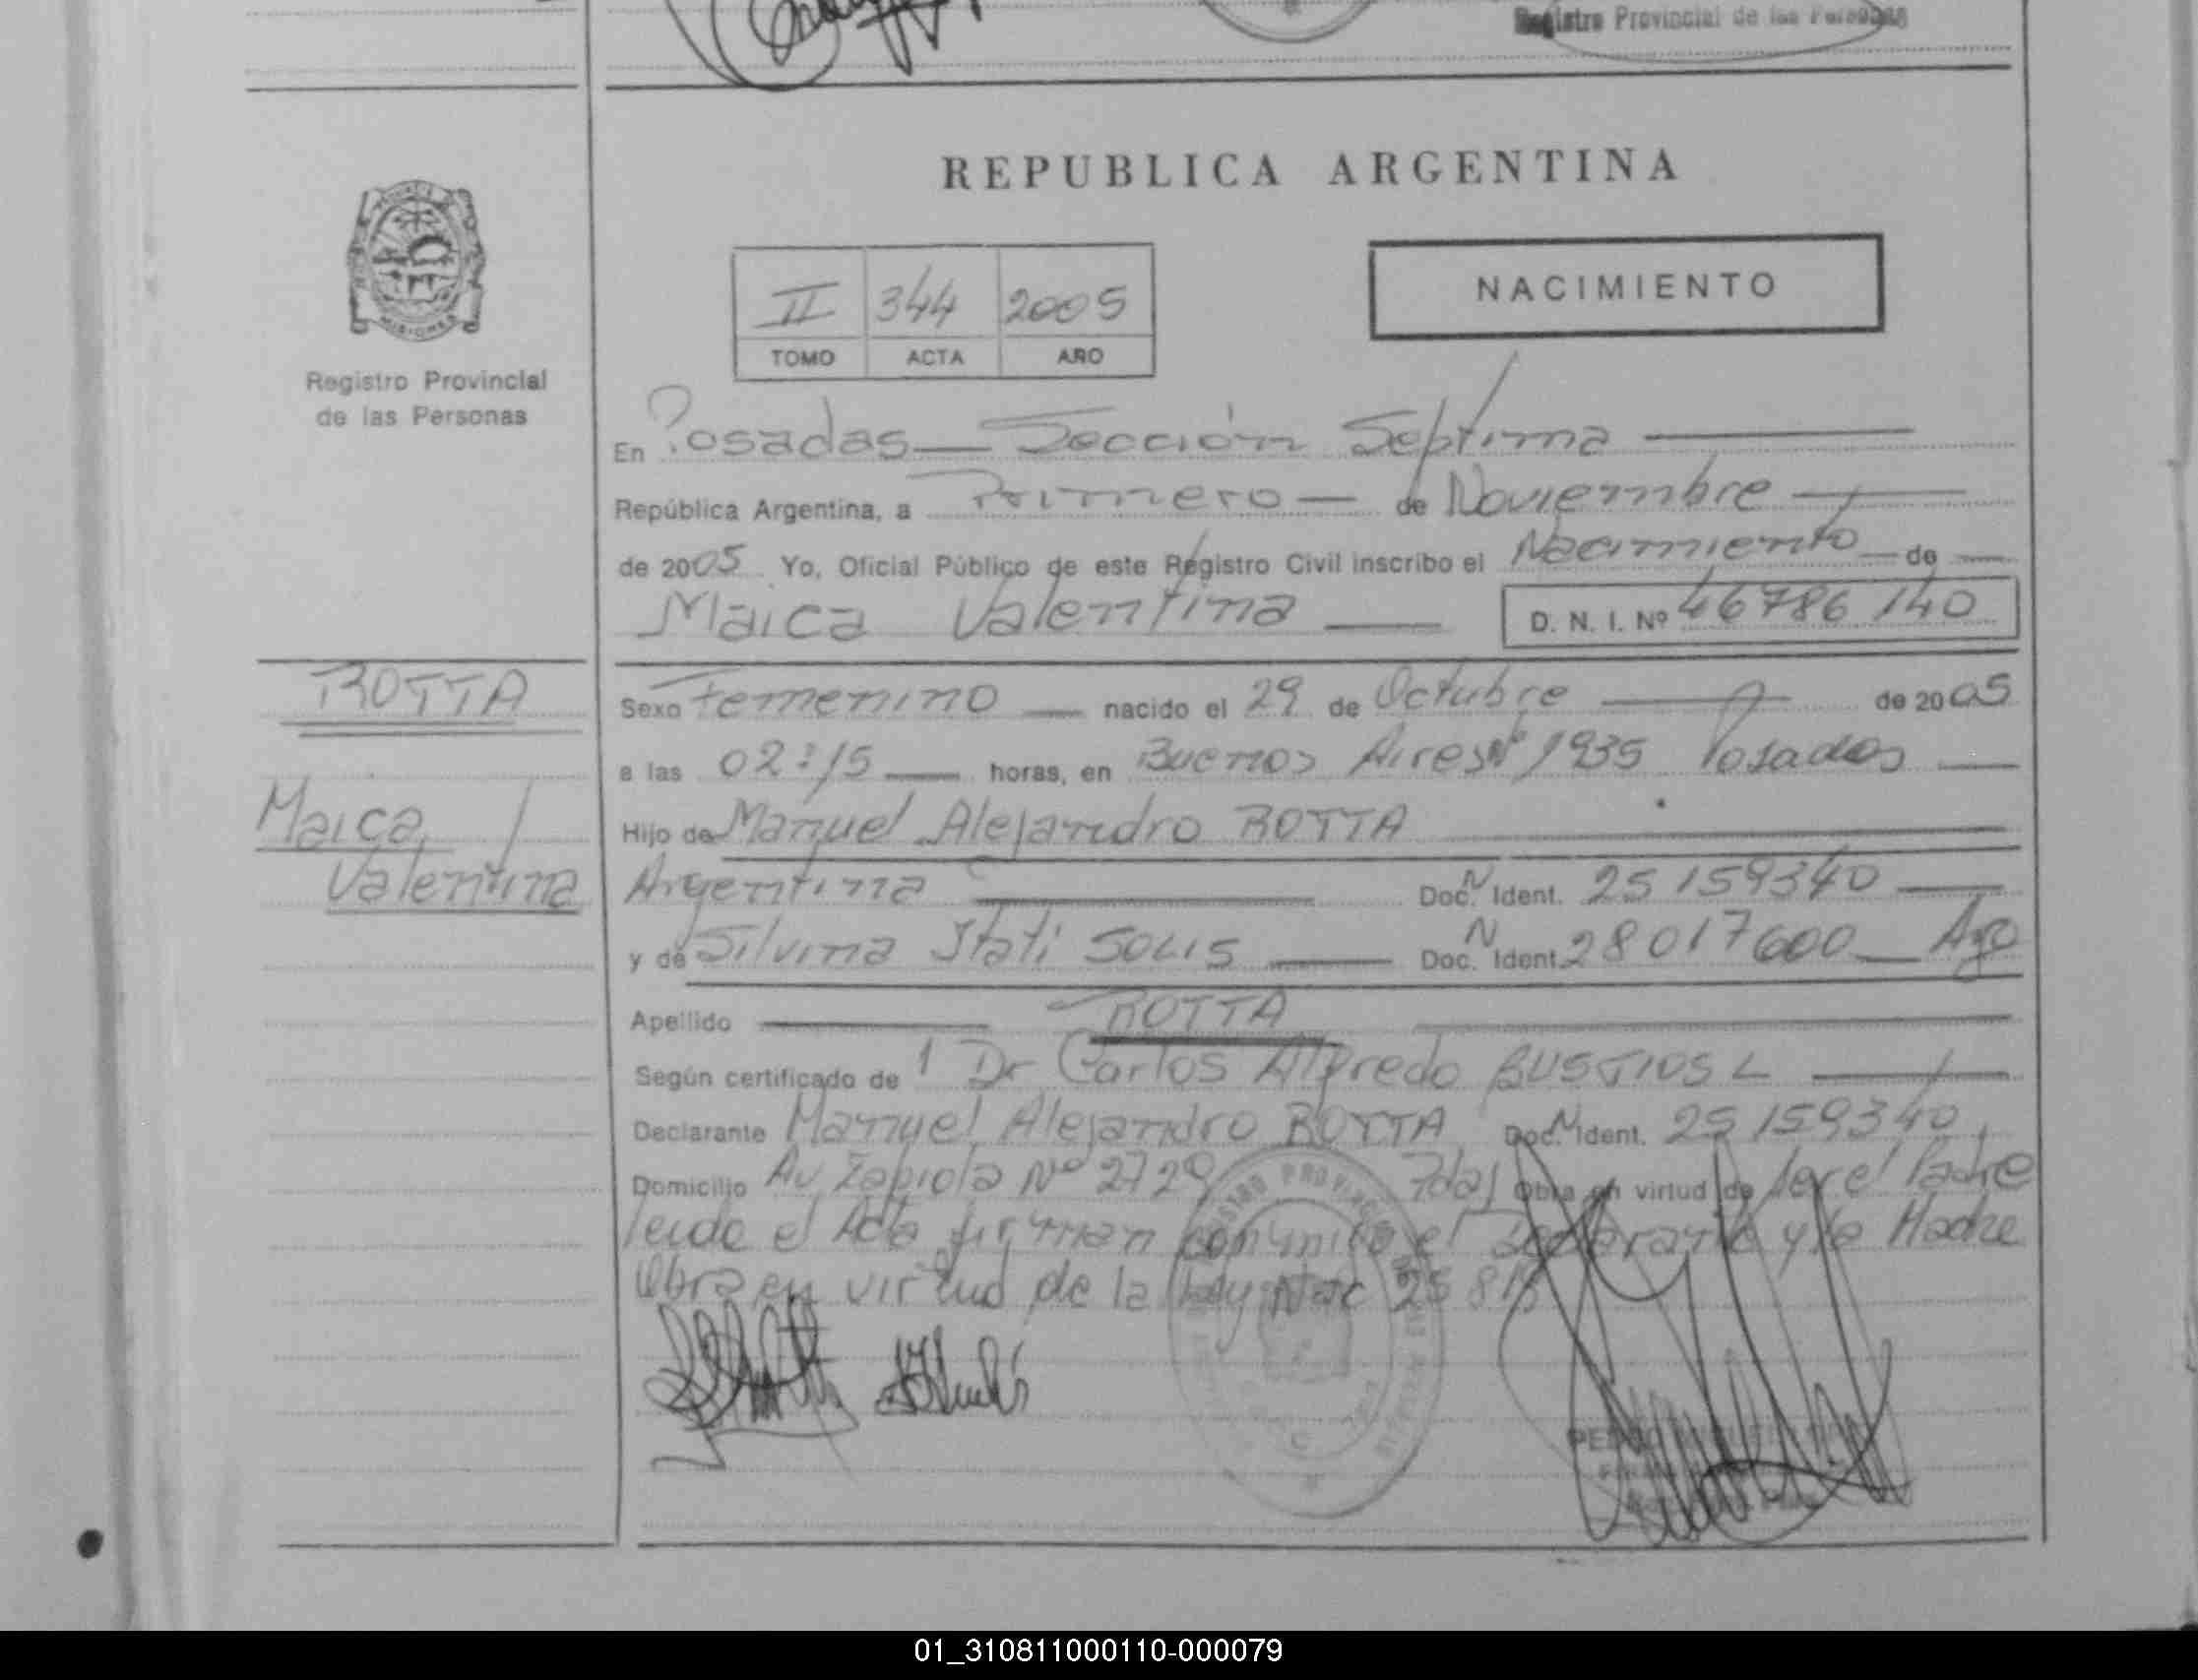 Registro Provincial de las Personas
REPUBLICA ARGENTINA
MISIONES
Registro Provincial
de las Personas
II 344 2005
TOMO ACTA AÑO
NACIMIENTO
En Posadas — Sección Septima —
República Argentina, a Primero — de Noviembre —
de 2005 Yo, Oficial Público de este Registro Civil inscribo el Nacimiento — de —
Maica Valentina —
D. N. I. Nº 46786140
ROTTA
Maica
Valentina
Sexo Femenino — nacido el 29 de Octubre — de 2005
a las 02:15 — horas, en Buenos Aires Nº 1935 Posadas —
Hijo de Manuel Alejandro ROTTA
Argentina — Doc. N Ident. 25159340 —
y de Silvina Itati SOLIS — Doc. N Ident. 28017600 — Arg
Apellido — ROTTA
Según certificado de 1 Dr Carlos Alfredo BUSTIOS L —
Declarante Manuel Alejandro ROTTA Doc. N Ident. 25159340
Domicilio Av Zapiola Nº 2729 Obra en virtud de ser el Padre
leida el Acta firman conmigo el Declarante y la Madre
Obra en virtud de la Ley Nac
01_310811000110-000079